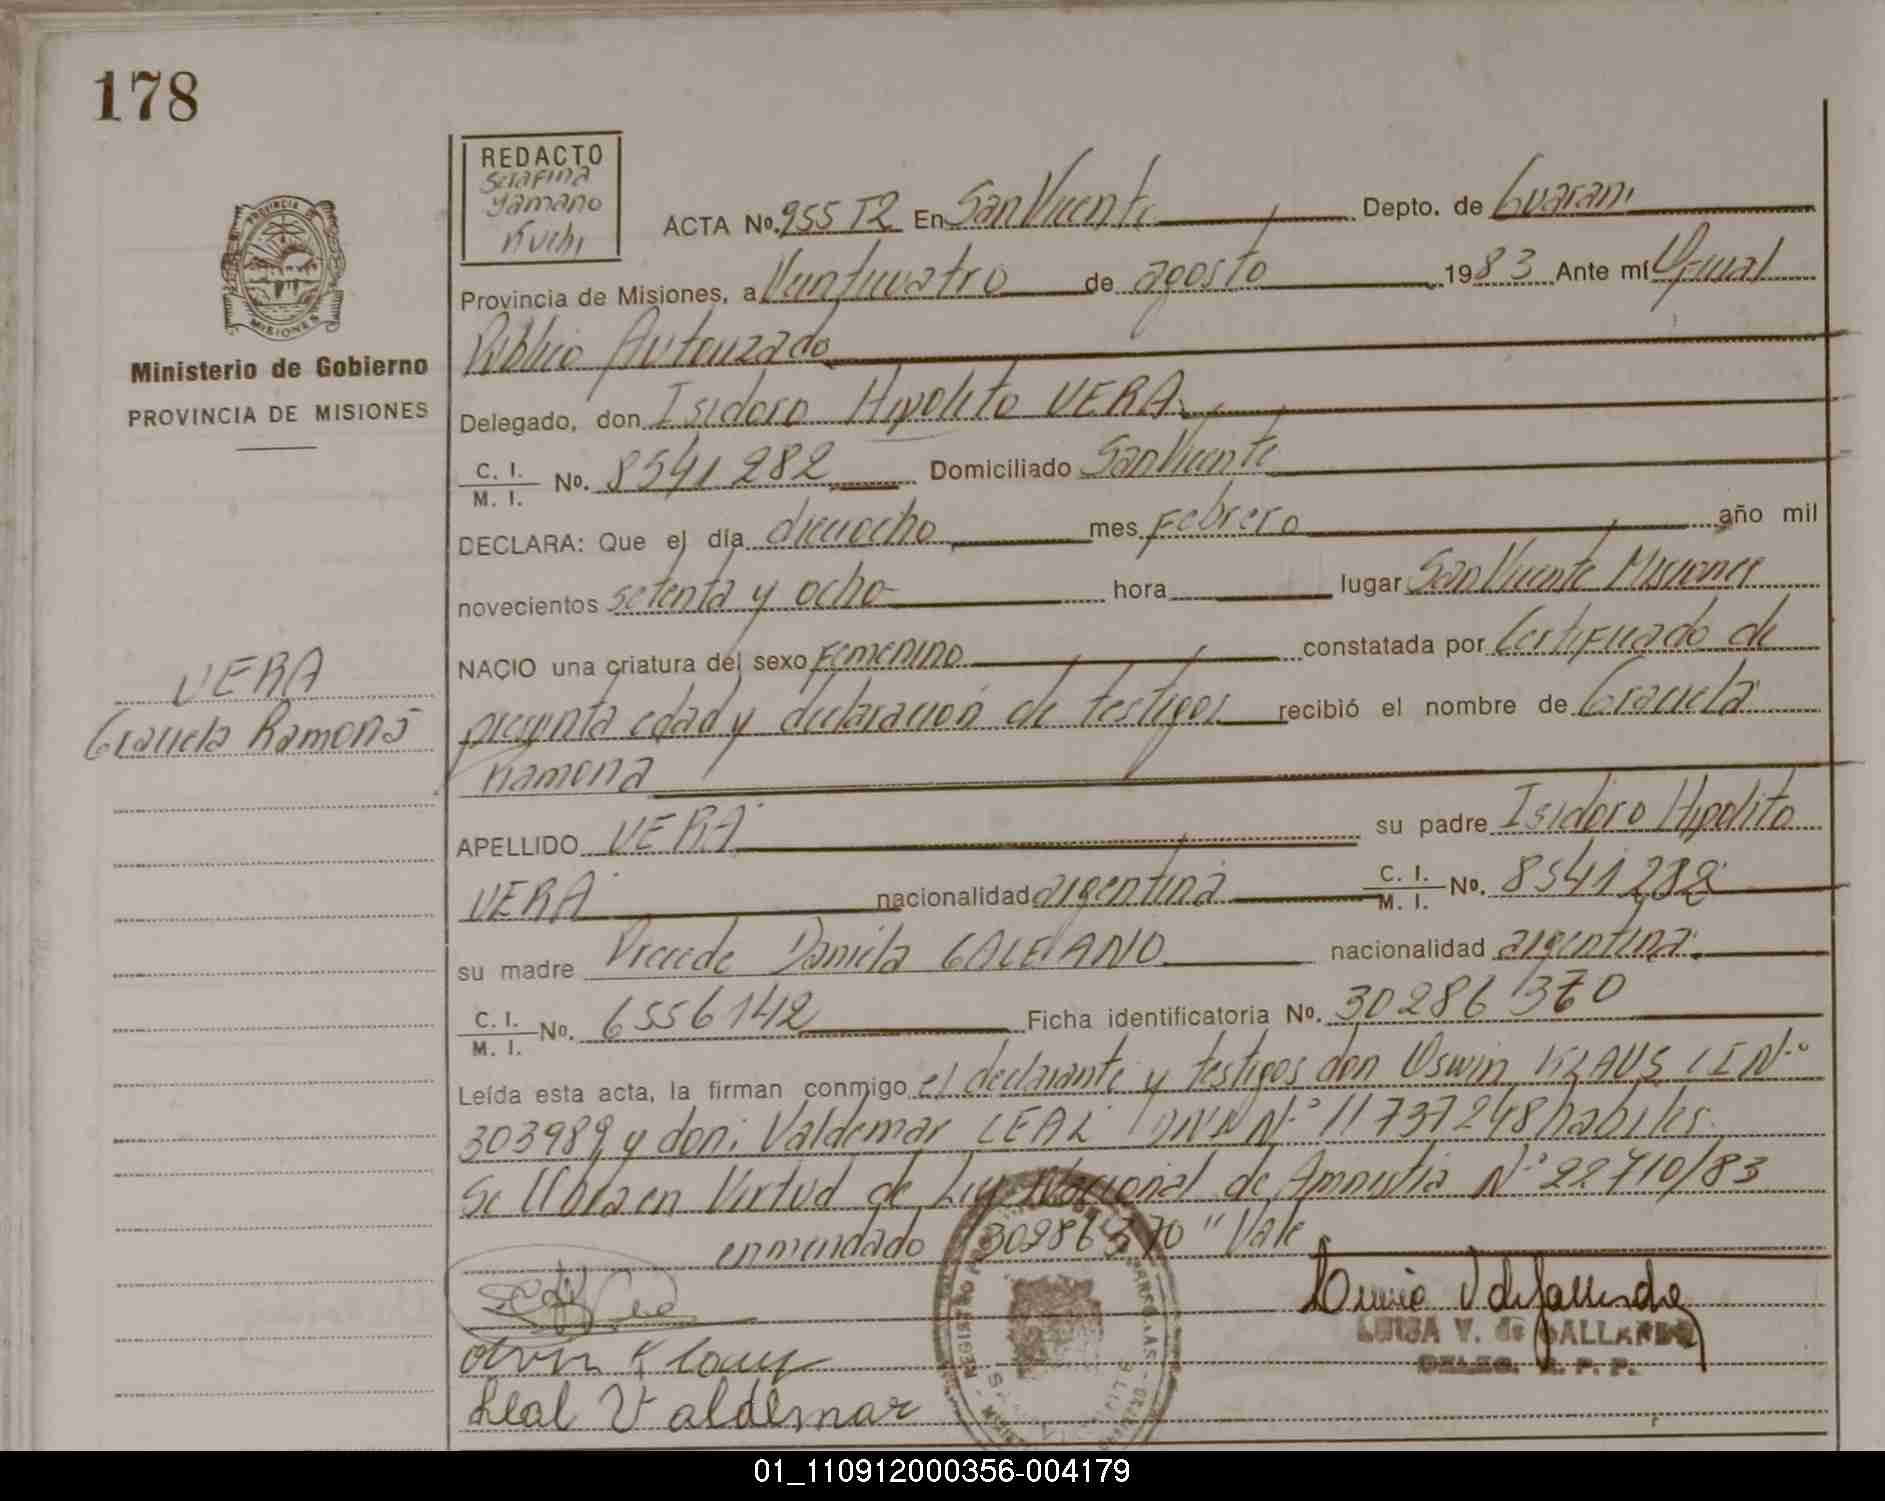 178
REDACTO
Serafina
Yamano
Kuchi
ACTA No. 955 T2 En San Vicente Depto. de Guarani
Provincia de Misiones, a Veinticuatro de agosto 1983 Ante mí Oficial
Público Autorizado
Ministerio de Gobierno
PROVINCIA DE MISIONES
Delegado, don Isidoro Hipolito VERA
C. I. / M. I. No. 8541282 Domiciliado San Vicente
DECLARA: Que el día dieciocho mes Febrero año mil
novecientos setenta y ocho hora lugar San Vicente Misiones
NACIO una criatura del sexo Femenino constatada por Certificado de
VERA
Graciela Ramona
presunta edad y declaración de testigos recibió el nombre de Graciela
Ramona
APELLIDO VERA su padre Isidoro Hipolito
VERA nacionalidad argentina C. I. / M. I. No. 8541282
su madre Daniela GALEANO nacionalidad argentina
C. I. / M. I. No. 6556142 Ficha identificatoria No. 30286370
Leída esta acta, la firman conmigo el declarante y testigos don Oswin KLAUS CI N°
303989 y don: Valdemar LEAL DNI N° 11737248 habiles.
Se labra en Virtud de Ley Nacional de Amnistia N° 22710/83
enmendado "30286370" Vale
Leal Valdemar
LUISA V. de GALLARDO
DELEG. R. P. P.
01_110912000356-004179